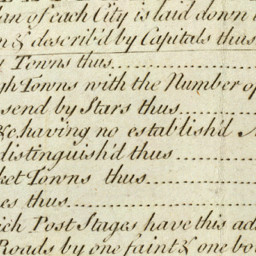 an of each City is laid down
& describ'd by Capitals thus
Towns thus
gh Towns with the Number of
send by Stars thus
&c. having no establish'd
distinguish'd thus
ket Towns thus
es thus
ich Post Stages have this ad
Roads by one faint & one bo